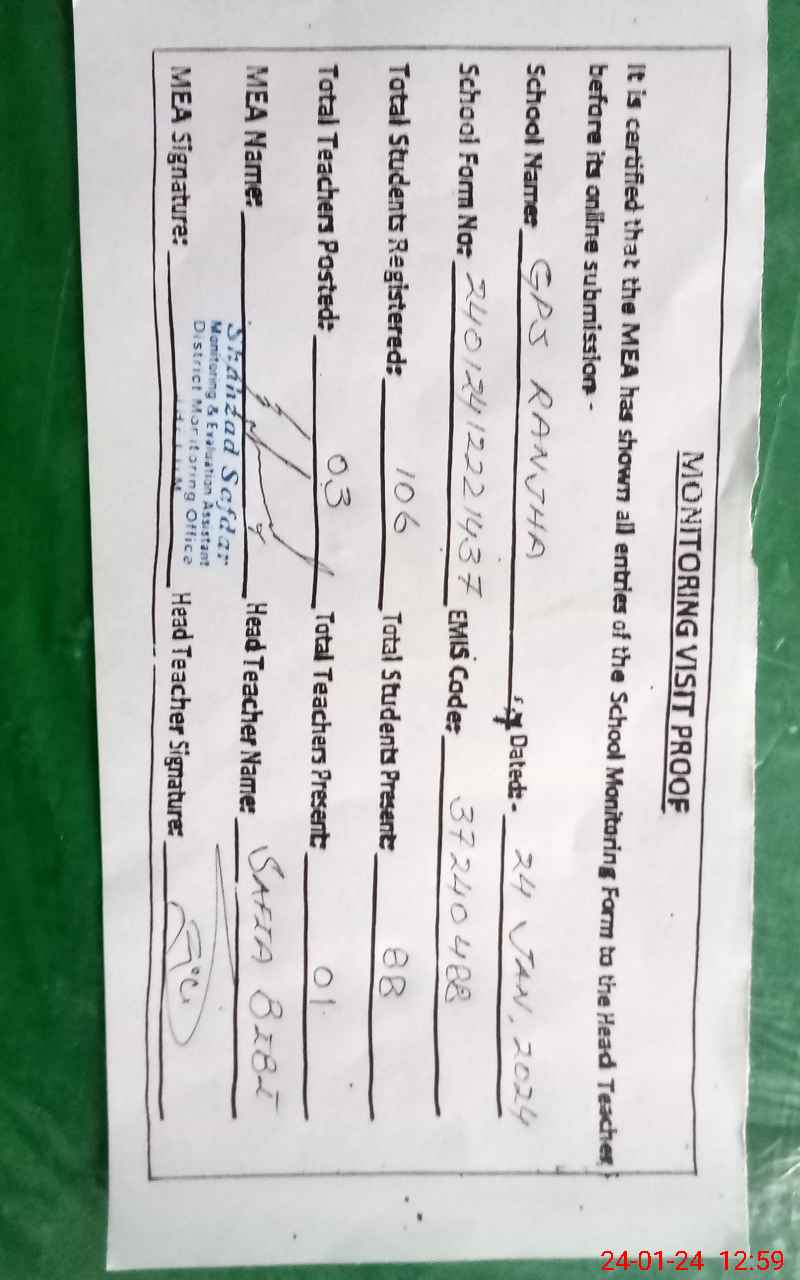 MONITORING VISIT PROOF
It is certified that the MEA has shown all entries of the School Monitoring Form to the Head Teacher
before its online submission.-
School Name: GPS RANJHA Dated:- 24 JAN, 2024
School Form No: 24012412221437 EMIS Code: 37240488
Total Students Registered: 106 Total Students Present: 88
Total Teachers Posted: 03 Total Teachers Present: 01
MEA Name: Head Teacher Name: SAFIA BIBI
Shahzad Safdar
Monitoring & Evaluation Assistant
District Monitoring Office
MEA Signature: Head Teacher Signature:
24-01-24 12:59